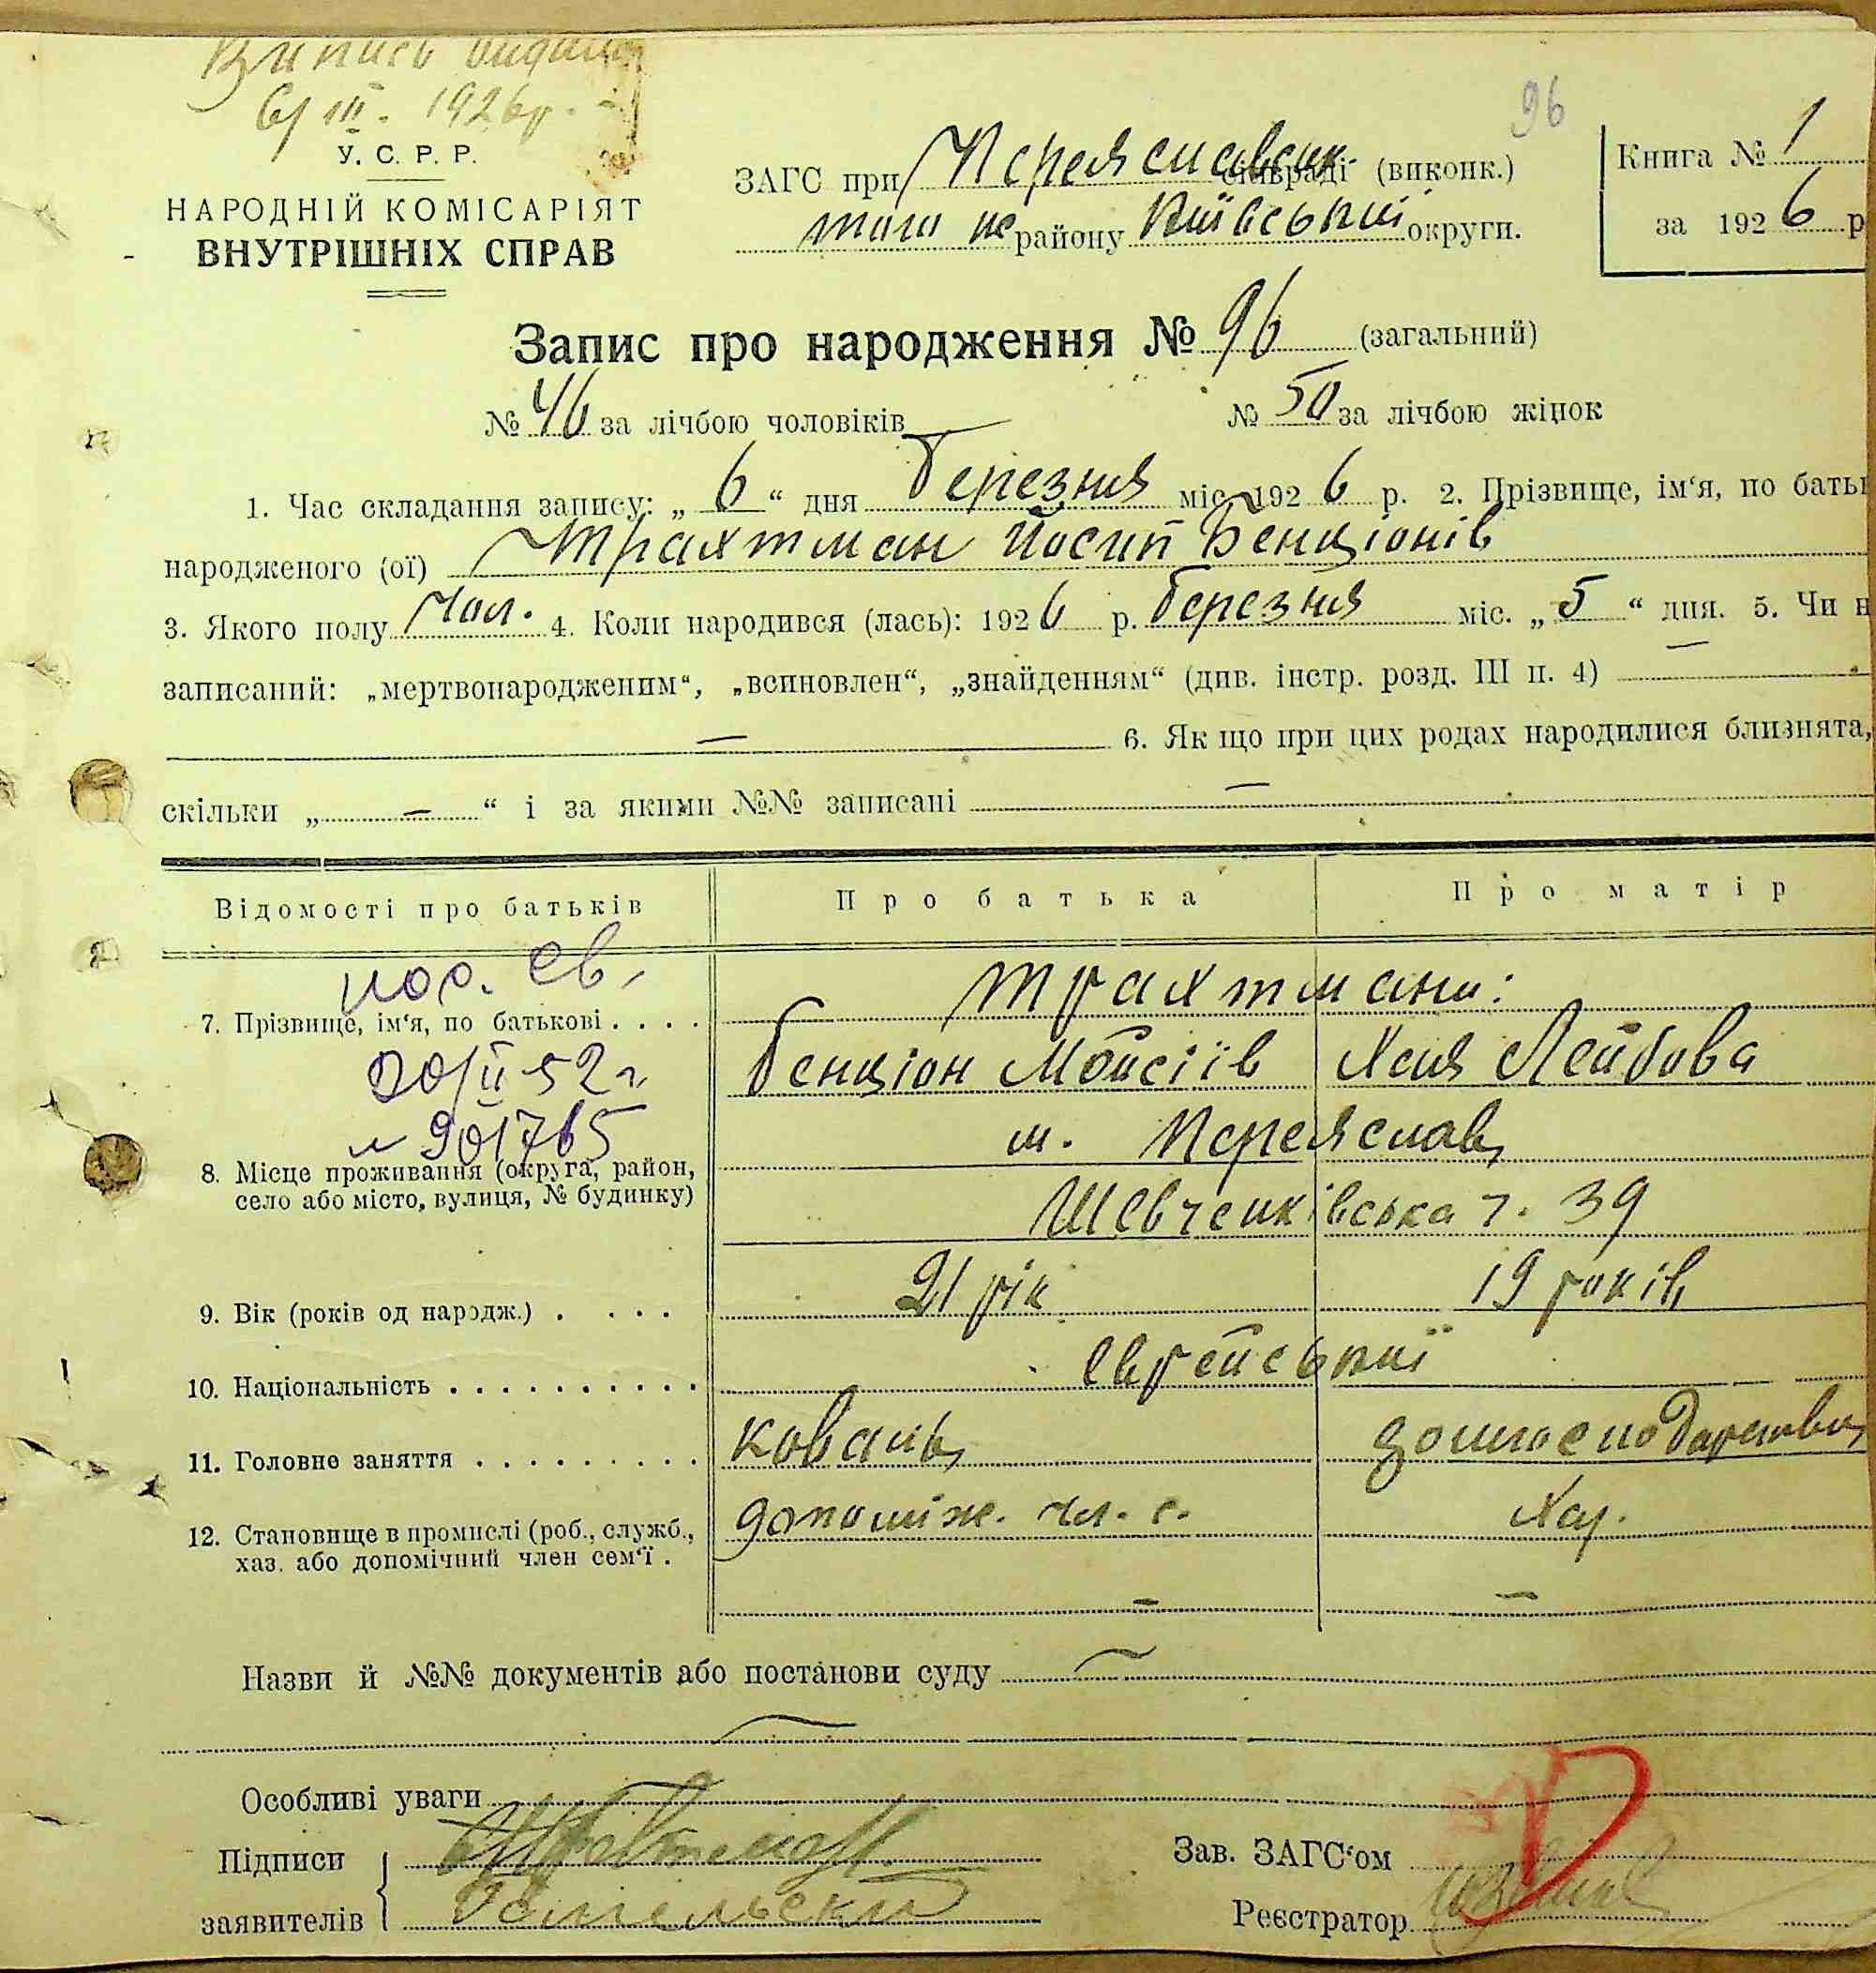 Випись видана
6/III. 1926р.
96
У. С. Р. Р.
НАРОДНІЙ КОМІСАРІЯТ
ВНУТРІШНІХ СПРАВ
ЗАГС при Переяславськ. сільраді (виконк.)
району Київської округи.
Книга № 1
за 1926 р
Запис про народження № 96 (загальний)
№ 46 за лічбою чоловіків № 50 за лічбою жінок
1. Час складання запису: „ 6 “ дня березня міс. 1926 р. 2. Прізвище, ім‘я, по бать
народженого (ої) Трахтман Йосип Бенціонів
3. Якого полу чол. 4. Коли народився (лась): 1926 р. березня міс. „ 5 “ дня. 5. Чи н
записаний: „мертвонародженим“, „всиновлен“, „знайденням“ (див. інстр. розд. III п. 4) —
— 6. Як що при цих родах народилися близнята,
скільки „ — “ і за якими №№ записані —
Відомості про батьків Про батька Про матір
7. Прізвище, ім‘я, по батькові . . . . Трахтмани:
Бенціон Мойсіїв Хася Лейбова
пос. св.
20/II 52 г.
8. Місце проживання (округа, район,
село або місто, вулиця, № будинку)
м. Переяслав,
Шевченківська ч. 39
9. Вік (років од народж.) . . . . 21 рік 19 років
10. Національність . . . . . . . . . . Єврейської
11. Головне заняття . . . . . . . . . коваль домогосподарство
12. Становище в промислі (роб., служб.,
хаз. або допомічний член сем‘ї .
допоміж. чл. с. Хаз.
— —
Назви й №№ документів або постанови суду —
Особливі уваги
Підписи
заявителів
Зав. ЗАГС‘ом
Реєстратор